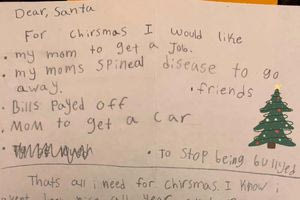 Dear, Santa
For Chirsmas I would like
• my mom to get a Job.
• my moms Spineal disease to go
away.
• friends
• Bills Payed off
• Mom to get a car
• To Stop being bullyed
Thats all i need for Chirsmas. I Know i